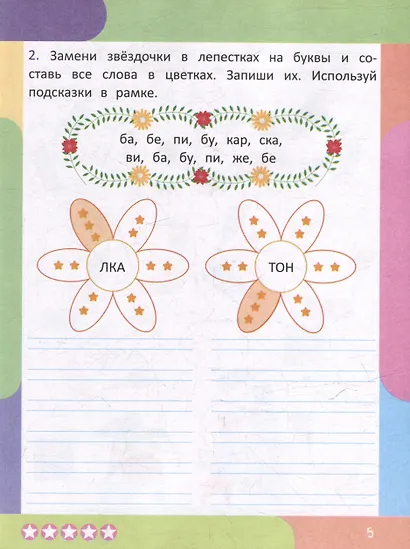 2. Замени звёздочки в лепестках на буквы и со-
ставь все слова в цветках. Запиши их. Используй
подсказки в рамке.
ба, бе, пи, бу, кар, ска,
ви, ба, бу, пи, же, бе
ЛКА
ТОН
5